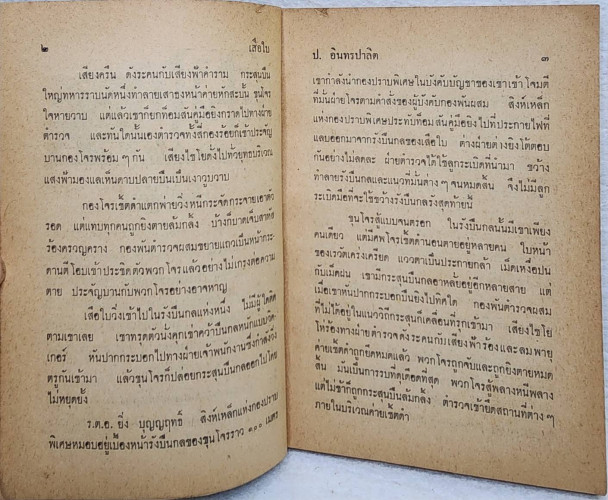 ๒ เสือใบ
เสียงครืน ดังระคนกับเสียงฟ้าคำราม กระสุนปืน
ใหญ่ทหารราบนัดหนึ่งทำลายเสาธงหน้าค่ายหักสะบั้น ขุนโจร
ใจหายวาบ แต่แล้วเขาก็ยกทอมสันคู่มือยิงกราดไปทางฝ่าย
ตำรวจ และทันใดนั้นเองตำรวจทั้งสี่กองร้อยก็เข้าประจัญ
บานกองโจรพร้อมๆ กัน เสียงไชโยดังไปทั่วยุทธบริเวณ
แสงฟ้าแลบแลเห็นดาบปลายปืนเป็นเงาวูบวาบ
กองโจรเช็ดดำแตกพ่ายวิ่งหนีกระจัดกระจายเอาตัว
รอด แต่แทบทุกคนถูกยิงตายล้มกลิ้ง บ้างก็บาดเจ็บสาหัส
ร้องครวญคราง กองพันตำรวจผสมขยายแถวเป็นหน้ากระ
ดานตีโอบเข้าประชิดตัวพวกโจรแล้วอย่างไม่เกรงต่อความ
ตาย ประจัญบานกับพวกโจรอย่างอาจหาญ
เสือใบวิ่งเข้าไปในรังปืนกลแห่งหนึ่ง ไม่มีผู้ใดติด
ตามเขาเลย เขาทรุดตัวนั่งคุกเข่าคว้าปืนกลหนักแบบวิค-
เกอร์ หันปากกระบอกไปทางฝ่ายเจ้าพนักงานซึ่งกำลังวิ่ง
ตรูกันเข้ามา แล้วขุนโจรก็ปล่อยกระสุนปืนกลออกไปโดย
ไม่หยุดยั้ง
ร.ต.อ. ยิ่ง บุญญฤทธิ์ สิงห์เหล็กแห่งกองปราบ
พิเศษหมอบอยู่เบื้องหน้ารังปืนกลของขุนโจรราว ๑๐๐ เมตร
ป. อินทรปาลิต ๓
เขากำลังนำกองปราบพิเศษในบังคับบัญชาของเขาเข้าโจมตี
ที่มั่นฝ่ายโจรตามคำสั่งของผู้บังคับกองพันผสม สิงห์เหล็ก
แห่งกองปราบพิเศษประทับทอมสันคู่มือยิงไปที่ประกายไฟที่
แลบออกมาจากรังปืนกลของเสือใบ ต่างฝ่ายต่างยิงโต้ตอบ
กันอย่างไม่ลดละ ฝ่ายตำรวจได้ใช้ลูกระเบิดที่นำมา ขว้าง
ทำลายรังปืนกลและแนวที่มั่นต่างๆ จนหมดสิ้น จึงไม่มีลูก
ระเบิดมือที่จะใช้ขว้างรังปืนกลรังสุดท้ายนี้
ขุนโจรสู้แบบจนตรอก ในรังปืนกลนั้นมีเขาเพียง
คนเดียว แต่มีศพโจรเช็ดดำนอนตายอยู่หลายคน ใบหน้า
ของเรวัตเคร่งเครียด แววตาเป็นประกายกล้า เม็ดเหงื่อปน
กับเม็ดฝน เขามีกระสุนปืนกลอาหลั่ยอยู่อีกหลายสาย แต่
เมื่อเขาหันปากกระบอกปืนยิงไปทิศใด กองพันตำรวจผสม
ที่ไม่ได้อยู่ในแนววิถีกระสุนก็เคลื่อนที่รุกเข้ามา เสียงไชโย
โห่ร้องทางฝ่ายตำรวจดังระคนกับเสียงฟ้าร้องและลมพายุ
ค่ายเช็ดดำถูกยึดหมดแล้ว พวกโจรถูกจับและถูกยิงตายหมด
สิ้น มันเป็นการรบที่ดุเดือดที่สุด พวกโจรสู้พลางหนีพลาง
แต่ไม่ช้าก็ถูกกระสุนปืนล้มกลิ้ง ตำรวจเข้ายึดสถานที่ต่างๆ
ภายในบริเวณค่ายเช็ดดำ